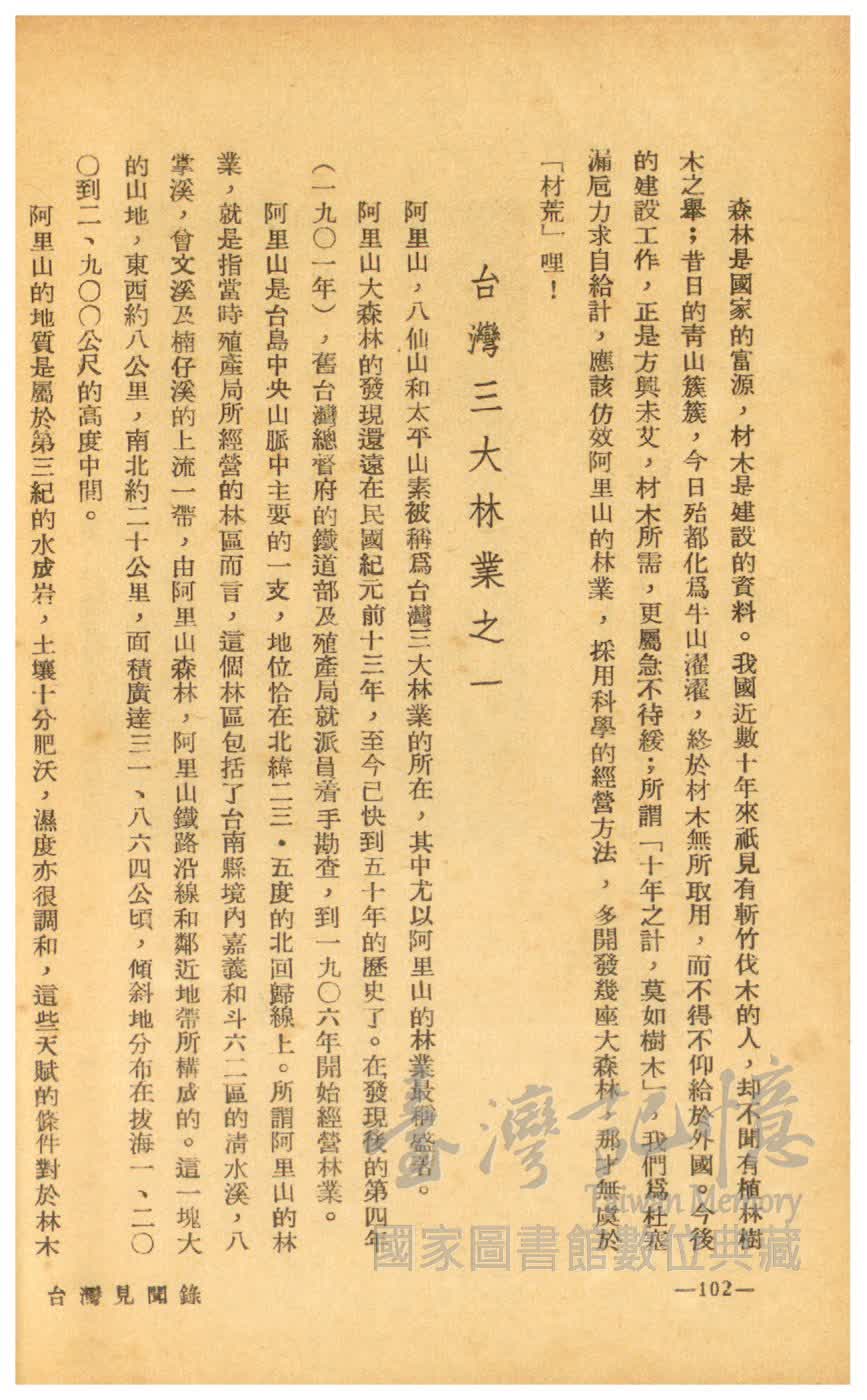 森林是國家的富源，材木是建設的資料。我國近數十年來祇見有斬竹伐木的人，却不聞有植林樹
木之舉；昔日的靑山簇簇，今日殆都化爲牛山濯濯，終於材木無所取用，而不得不仰給於外國。今後
的建設工作，正是方興未艾，材木所需，更屬急不待緩；所謂「十年之計，莫如樹木」，我們爲杜塞
漏巵力求自給計，應該仿效阿里山的林業，採用科學的經營方法，多開發幾座大森林，那才無虞於
「材荒」哩！
台灣三大林業之一
阿里山，八仙山和太平山素被稱爲台灣三大林業的所在，其中尤以阿里山的林業最稱盛著。
阿里山大森林的發現還遠在民國紀元前十三年，至今已快到五十年的歷史了。在發現後的第四年
（一九〇一年），舊台灣總督府的鐵道部及殖產局就派員着手勘查，到一九〇六年開始經營林業。
阿里山是台島中央山脈中主要的一支，地位恰在北緯二三・五度的北回歸線上。所謂阿里山的林
業，就是指當時殖產局所經營的林區而言，這個林區包括了台南縣境內嘉義和斗六二區的淸水溪，八
掌溪，曾文溪及楠仔溪的上流一帶，由阿里山森林，阿里山鐵路沿線和鄰近地帶所構成的。這一塊大
的山地，東西約八公里，南北約二十公里，面積廣達三一、八六四公頃，傾斜地分布在拔海一、二〇
〇到二、九〇〇公尺的高度中間。
阿里山的地質是屬於第三紀的水成岩，土壤十分肥沃，濕度亦很調和，這些天賦的條件對於林木
台灣見聞錄
—102—
臺灣記憶
Taiwan Memory
國家圖書館數位典藏